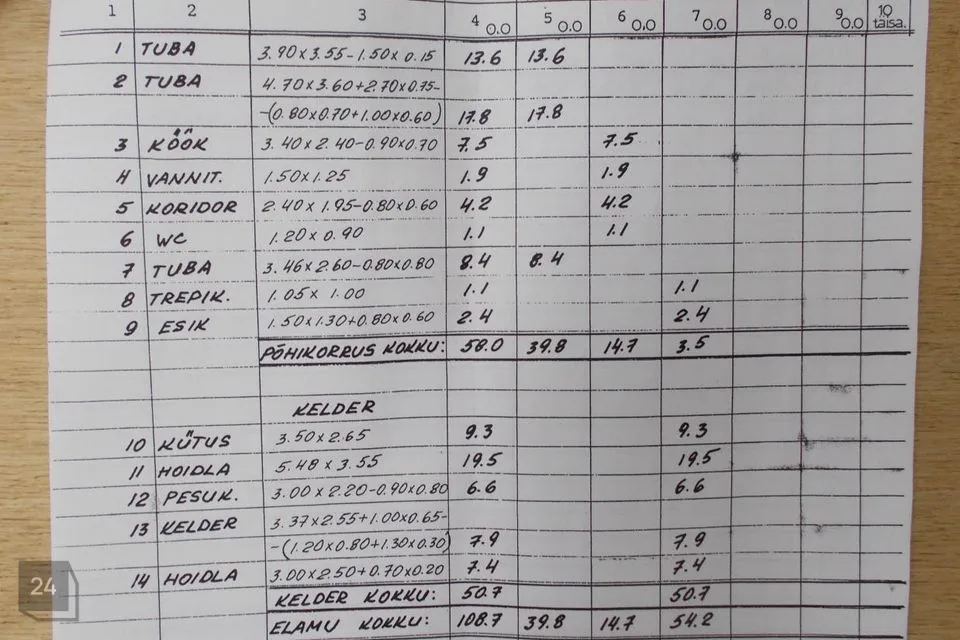 1 2 3 4 0.0 5 0.0 6 0.0 7 0.0 8 0.0 9 0.0 10 täisa.
1 TUBA 3.90 x 3.55 - 1.50 x 0.15 13.6 13.6
2 TUBA 4.70 x 3.60 + 2.70 x 0.75 -
-(0.80 x 0.70 + 1.00 x 0.60) 17.8 17.8
3 KÖÖK 3.40 x 2.40 - 0.90 x 0.70 7.5 7.5
4 VANNIT. 1.50 x 1.25 1.9 1.9
5 KORIDOR 2.40 x 1.95 - 0.80 x 0.60 4.2 4.2
6 WC 1.20 x 0.90 1.1 1.1
7 TUBA 3.46 x 2.60 - 0.80 x 0.80 8.4 8.4
8 TREPIK. 1.05 x 1.00 1.1 1.1
9 ESIK 1.50 x 1.30 + 0.80 x 0.60 2.4 2.4
PÕHIKORRUS KOKKU: 58.0 39.8 14.7 3.5
KELDER
10 KÜTUS 3.50 x 2.65 9.3 9.3
11 HOIDLA 5.48 x 3.55 19.5 19.5
12 PESUK. 3.00 x 2.20 - 0.90 x 0.80 6.6 6.6
13 KELDER 3.37 x 2.55 + 1.00 x 0.65 -
-(1.20 x 0.80 + 1.30 x 0.30) 7.9 7.9
14 HOIDLA 3.00 x 2.50 + 0.70 x 0.20 7.4 7.4
KELDER KOKKU: 50.7 50.7
ELAMU KOKKU: 108.7 39.8 14.7 54.2
24